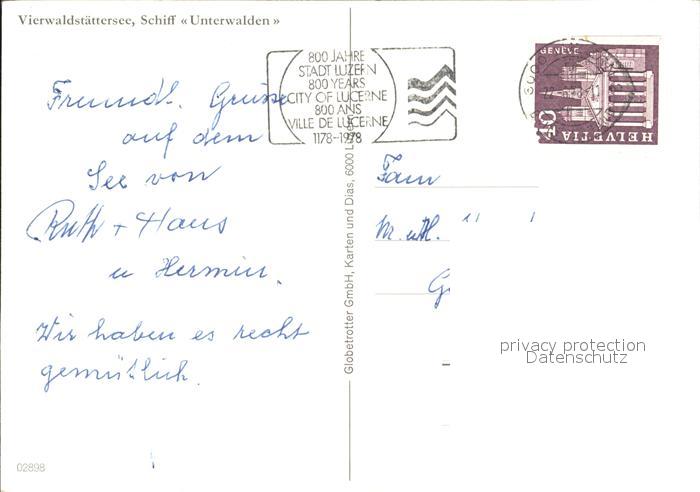 Vierwaldstättersee, Schiff «Unterwalden»
Freundl. Grüsse
auf dem
See von
Ruth + Hans
u Hermin.
Wir haben es recht
gemütlich.
02898
Globetrotter GmbH, Karten und Dias, 6000 Luzern
800 JAHRE
STADT LUZERN
800 YEARS
CITY OF LUCERNE
800 ANS
VILLE DE LUCERNE
1178-1978
GENÈVE
40
HELVETIA
Fam
privacy protection
Datenschutz